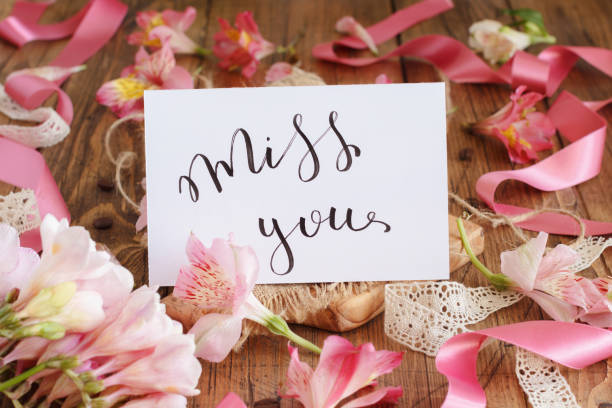 Miss
you